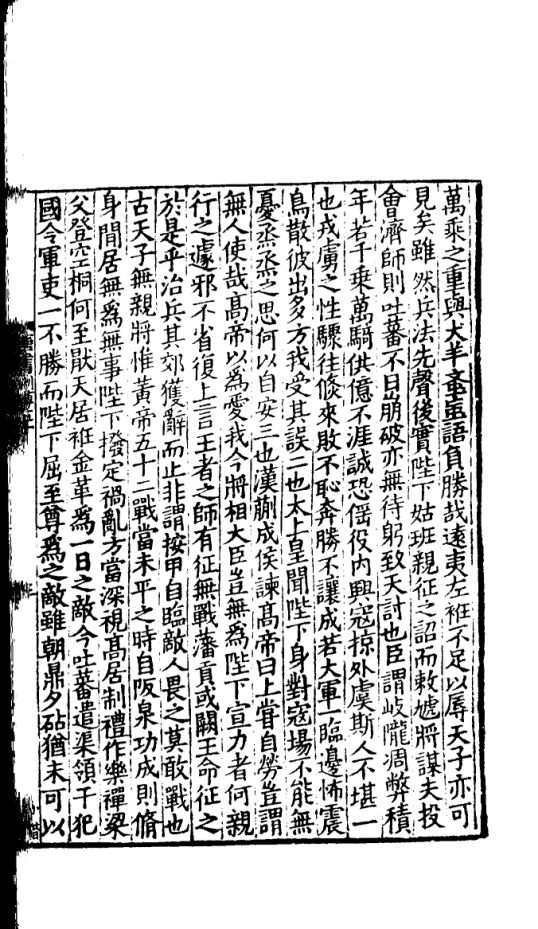 萬乘之重與犬羊蚉䖟語負勝哉遠夷左袵不足以辱天子亦可
見矣雖然兵法先聲後實陛下姑班親征之詔而敕虓將謀夫投
會濟師則吐蕃不日崩破亦無待躬致天討也臣謂岐隴凋弊積
年若千乘萬騎供億不涯誠恐傜役內興寇掠外虞斯人不堪一
也戎虜之性驟往倐來敗不恥奔勝不讓成若大軍一臨邊怖震
鳥散彼出多方我受其誤二也太上皇聞陛下身對寇場不能無
憂烝烝之思何以自安三也漢蒯成侯諫髙帝曰上甞自勞豈謂
無人使哉髙帝以爲愛我今將相大臣豈無爲陛下宣力者何親
行之遽邪不省復上言王者之師有征無戰藩貢或闕王命征之
於是乎治兵其郊獲辭而止非謂按甲自臨敵人畏之莫敢戰也
古天子無親將惟黃帝五十二戰當未平之時自阪泉功成則脩
身閒居無爲無事陛下撥定禍亂方當深視髙居制禮作樂禪梁
父登空桐何至猒天居袵金革爲一日之敵今吐蕃遣渠領干犯
國令軍吏一不勝而陛下屈至尊爲之敵雖朝鼎夕砧猶未可以